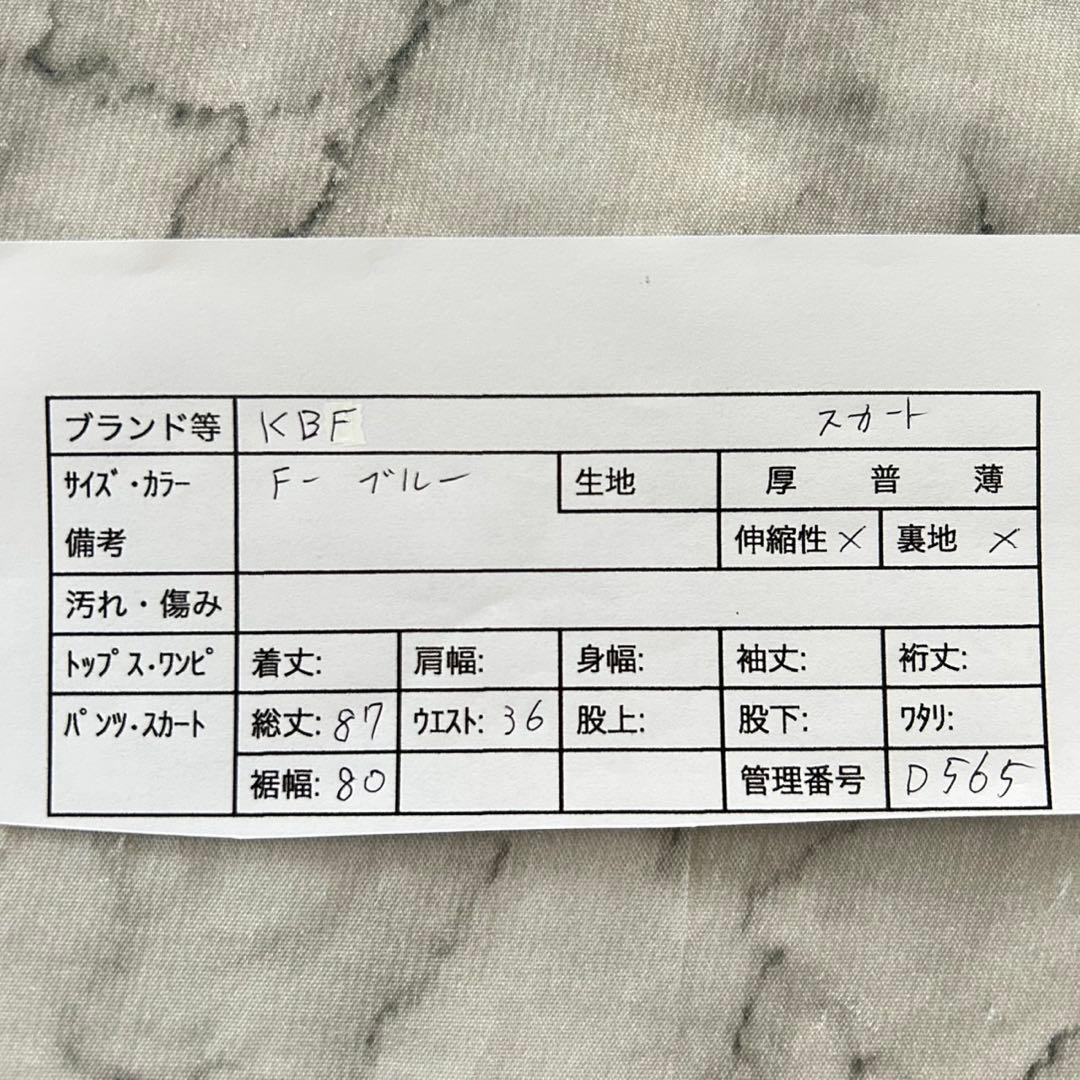 ブランド等 KBF スカート
ｻｲｽﾞ・ｶﾗｰ F- ブルー 生地 厚 普 薄
備考 伸縮性 × 裏地 ×
汚れ・傷み
ﾄｯﾌﾟｽ・ﾜﾝﾋﾟ 着丈: 肩幅: 身幅: 袖丈: 裄丈:
ﾊﾟﾝﾂ・ｽｶｰﾄ 総丈: 87 ｳｴｽﾄ: 36 股上: 股下: ﾜﾀﾘ:
裾幅: 80 管理番号 D565